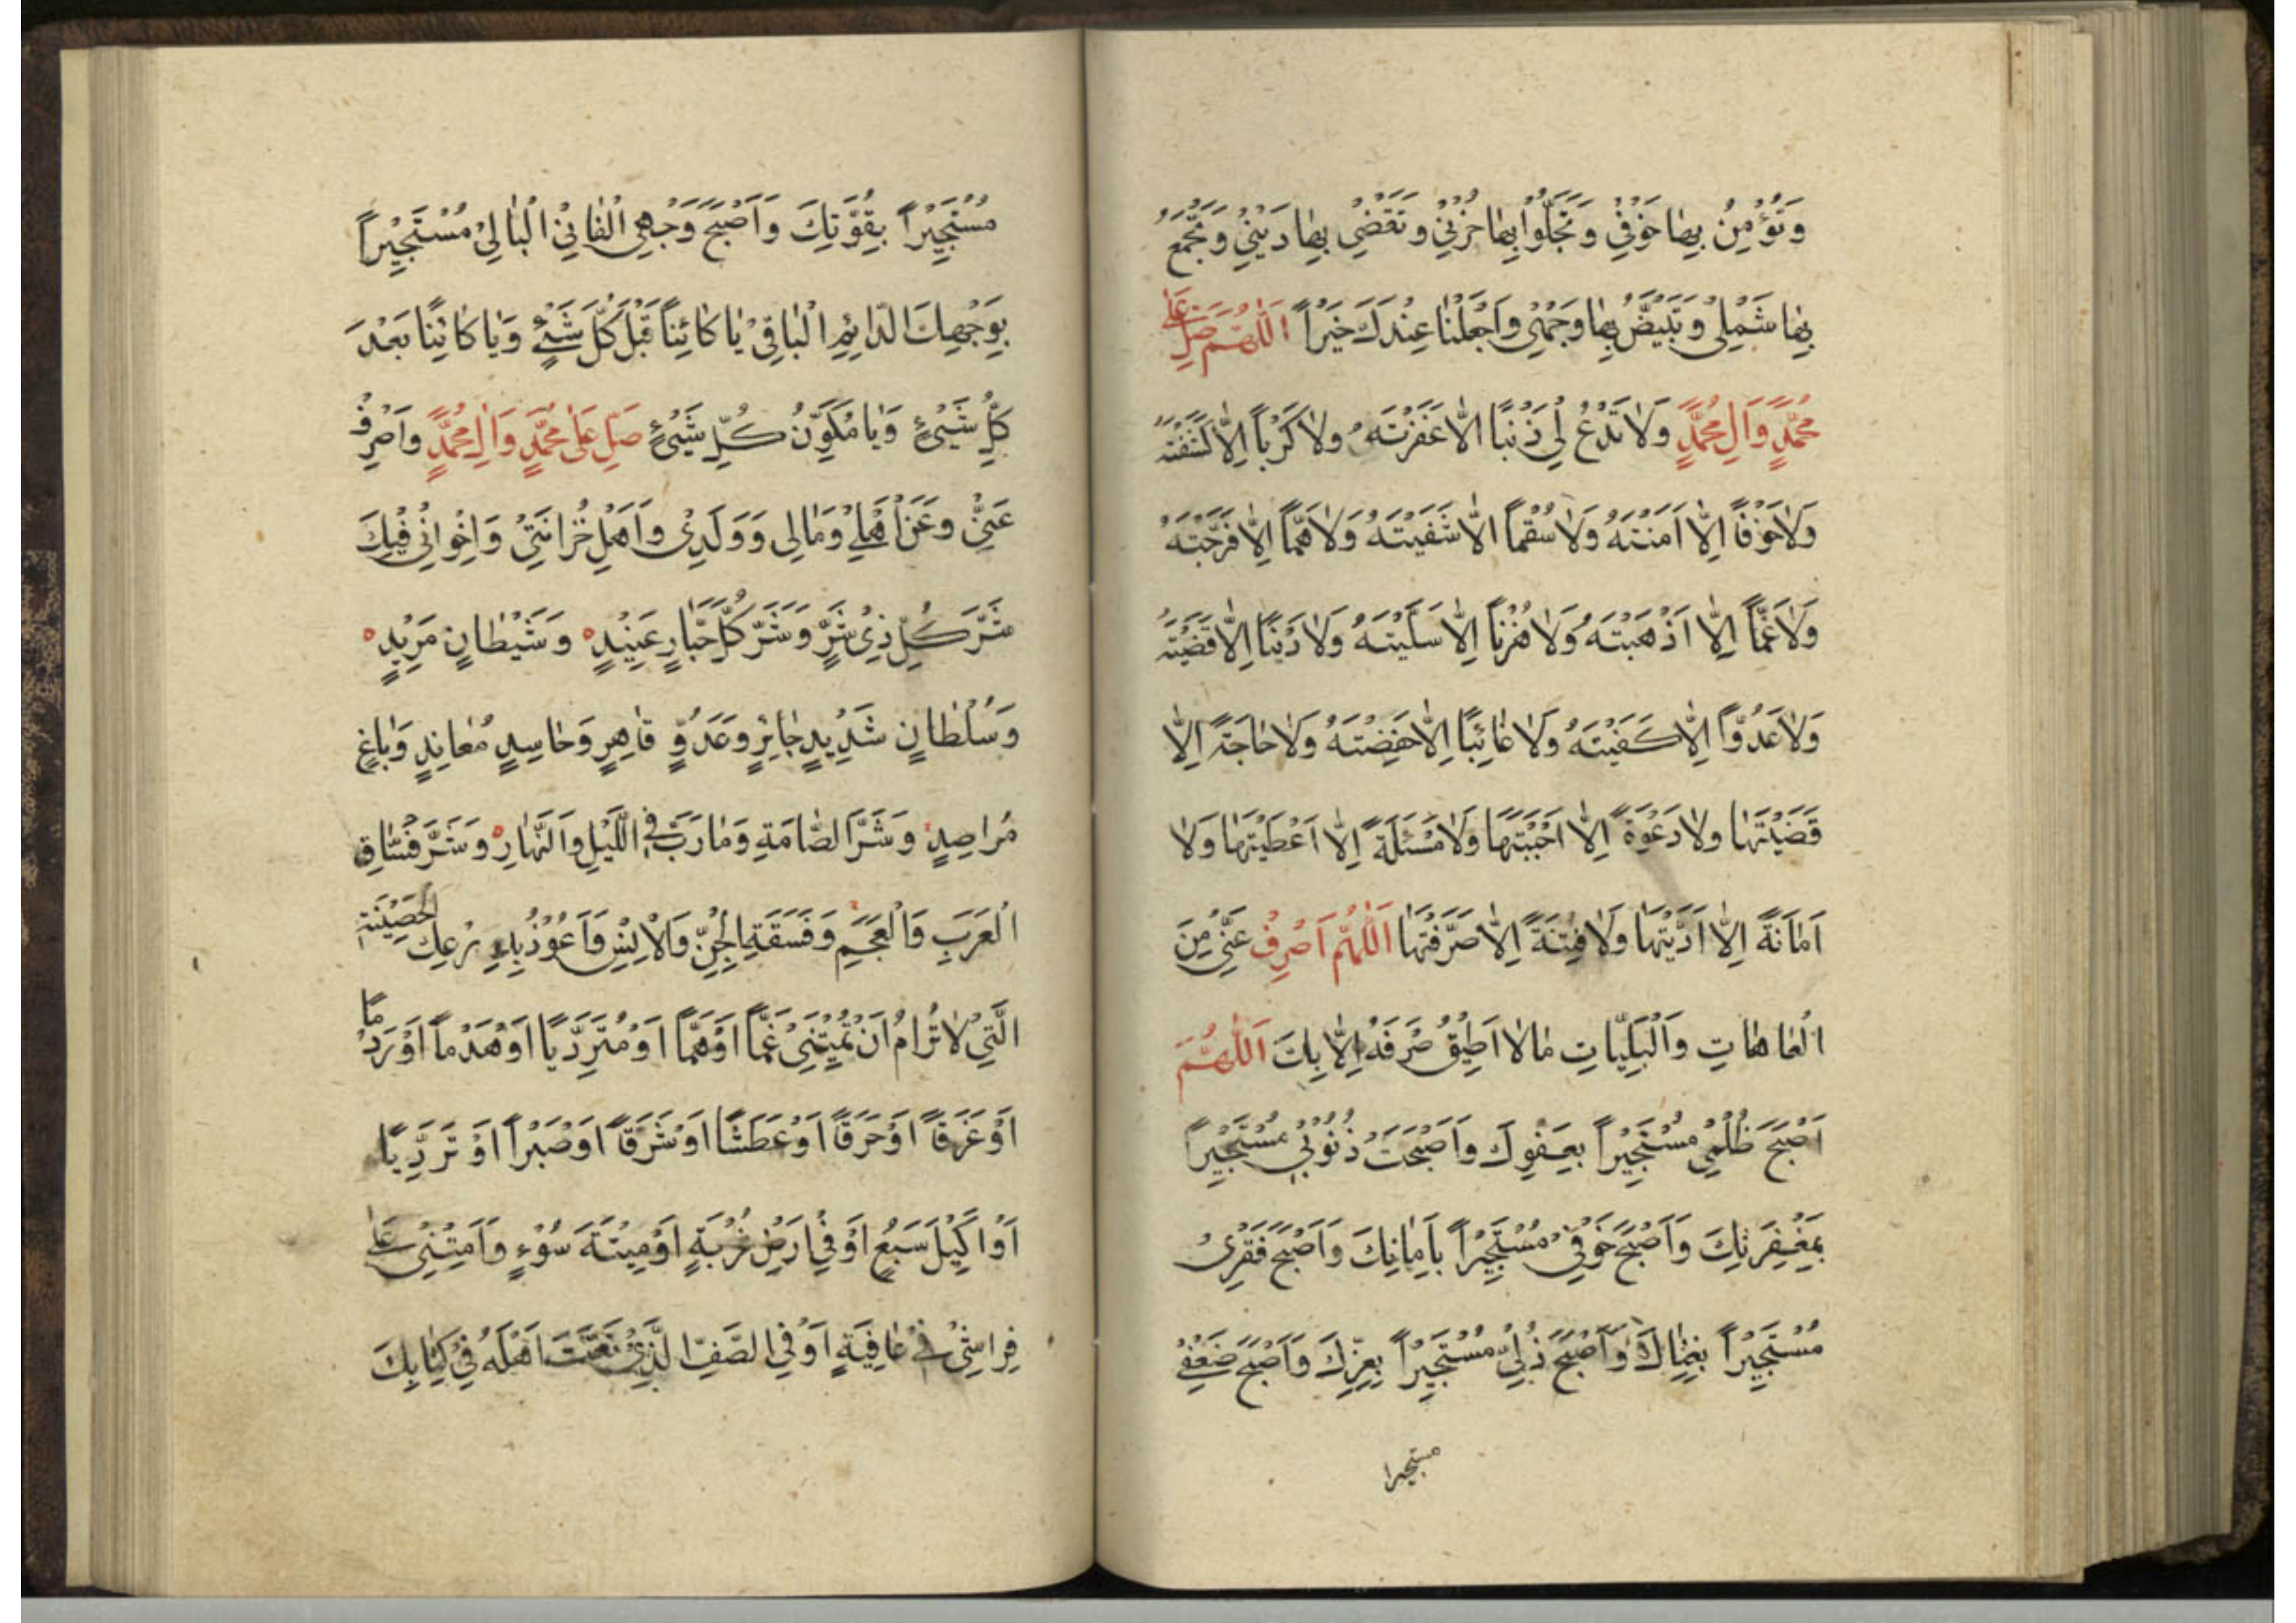 وَتُؤْمِنُ بِهٰا خَوْفِيْ وَتَجْلُوا بِهٰا حُزْنِيْ وَتَقْضِيْ بِهٰا دَيْنِيْ وَتَجْمَعُ
بِهٰا شَمْلِيْ وَتُبَيِّضُ بِهٰا وَجْهِيْ وَاجْعَلْنٰا عِنْدَكَ خَيْراً اَللّٰهُمَّ صَلِّ عَلٰى
مُحَمَّدٍ وَاٰلِ مُحَمَّدٍ وَلاٰ تَدَعْ لِيْ ذَنْبًا اِلاّٰ غَفَرْتَهُ وَلاٰ كَرْباً اِلاّٰ كَشَفْتَهُ
وَلاٰ خَوْفاً اِلاّٰ اٰمَنْتَهُ وَلاٰ سُقْماً اِلاّٰ شَفَيْتَهُ وَلاٰ هَمّاً اِلاّٰ فَرَّجْتَهُ
وَلاٰ غَمّاً اِلاّٰ اَذْهَبْتَهُ وَلاٰ حُزْناً اِلاّٰ سَلَّيْتَهُ وَلاٰ دَيْناً اِلاّٰ قَضَيْتَهُ
وَلاٰ عَدُوّاً اِلاّٰ كَفَيْتَهُ وَلاٰ غٰائِبًا اِلاّٰ حَفِضْتَهُ وَلاٰ حٰاجَةً اِلاّٰ
قَضَيْتَهٰا وَلاٰ دَعْوَةً اِلاّٰ اَجَبْتَهٰا وَلاٰ مَسْئَلَةً اِلاّٰ اَعْطَيْتَهٰا وَلاٰ
اَمٰانَةً اِلاّٰ اَدَّيْتَهٰا وَلاٰ فِتْنَةً اِلاّٰ صَرَّفْتَهٰا اَللّٰهُمَّ اَصْرِفْ عَنِّيْ مِنَ
الْعٰاهٰاتِ وَالْبَلِيّٰاتِ مٰا لاٰ اَطِيْقُ صَرْفَهُ اِلاّٰ بِكَ اَللّٰهُمَّ
اَصْبَحَ ظُلْمِيْ مُسْتَجِيْراً بِعَفْوِكَ وَاَصْبَحَتْ ذُنُوْبِيْ مُسْتَجِيْراً
بِمَغْفِرَتِكَ وَاَصْبَحَ خَوْفِيْ مُسْتَجِيْراً بِاَمٰانِكَ وَاَصْبَحَ فَقْرِيْ
مُسْتَجِيْراً بِغِنٰاكَ وَاَصْبَحَ ذُلِّيْ مُسْتَجِيْراً بِعِزِّكَ وَاَصْبَحَ ضَعْفِيْ
مستجيرا
مُسْتَجِيْراً بِقُوَّتِكَ وَاَصْبَحَ وَجْهِيَ الْفٰانِيْ الْبٰالِيْ مُسْتَجِيْراً
بِوَجْهِكَ الدّٰائِمِ الْبٰاقِيْ يٰا كٰائِناً قَبْلَ كُلِّ شَيْءٍ وَيٰا كٰائِنًا بَعْدَ
كُلِّ شَيْءٍ وَيٰا مُكَوِّنُ كُلِّ شَيْءٍ صَلِّ عَلٰى مُحَمَّدٍ وَاٰلِ مُحَمَّدٍ وَاصْرِفْ
عَنِّيْ وَعَنْ اَهْلِيْ وَمٰالِيْ وَوَلَدِيْ وَاَهْلِ خُزٰانَتِيْ وَاِخْوٰانِيْ فِيْكَ
شَرَّ كُلِّ ذِيْ شَرٍّ وَشَرَّ كُلِّ جَبّٰارٍ عَنِيْدٍ وَشَيْطٰانٍ مَرِيْدٍ
وَسُلْطٰانٍ شَدِيْدٍ جٰائِرٍ وَعَدُوٍّ قٰاهِرٍ وَحٰاسِدٍ مُعٰانِدٍ وَبٰاغٍ
مُرٰاصِدٍ وَشَرَّ الصّٰامَةِ وَمٰا دَبَّ فِي اللَّيْلِ وَالنَّهٰارِ وَشَرَّ فُسّٰاقِ
الْعَرَبِ وَالْعَجَمِ وَفَسَقَةِ الْجِنِّ وَالْاِنْسِ وَاَعُوْذُ بِدِرْعِكَ الْحَصِيْنَةِ
الَّتِيْ لاٰ تُرٰامُ اَنْ تُمِيْتَنِيْ غَمّاً اَوْ هَمّاً اَوْ مُتَرَدِّياً اَوْ هَدْماً اَوْ رَدْماً
اَوْ غَرَقاً اَوْ حَرَقاً اَوْ عَطَشًا اَوْ شَرَقاً اَوْ صَبْراً اَوْ تَرَدِّيًا
اَوْ اَكِيْلَ سَبُعٍ اَوْ فِيْ اَرْضِ غُرْبَةٍ اَوْ مِيْتَةَ سُوْءٍ وَاَمِتْنِيْ عَلٰى
فِرٰاشِيْ فِيْ عٰافِيَةٍ اَوْ فِي الصَّفِّ الَّذِيْ نَعَتَّ اَهْلَهُ فِيْ كِتٰابِكَ